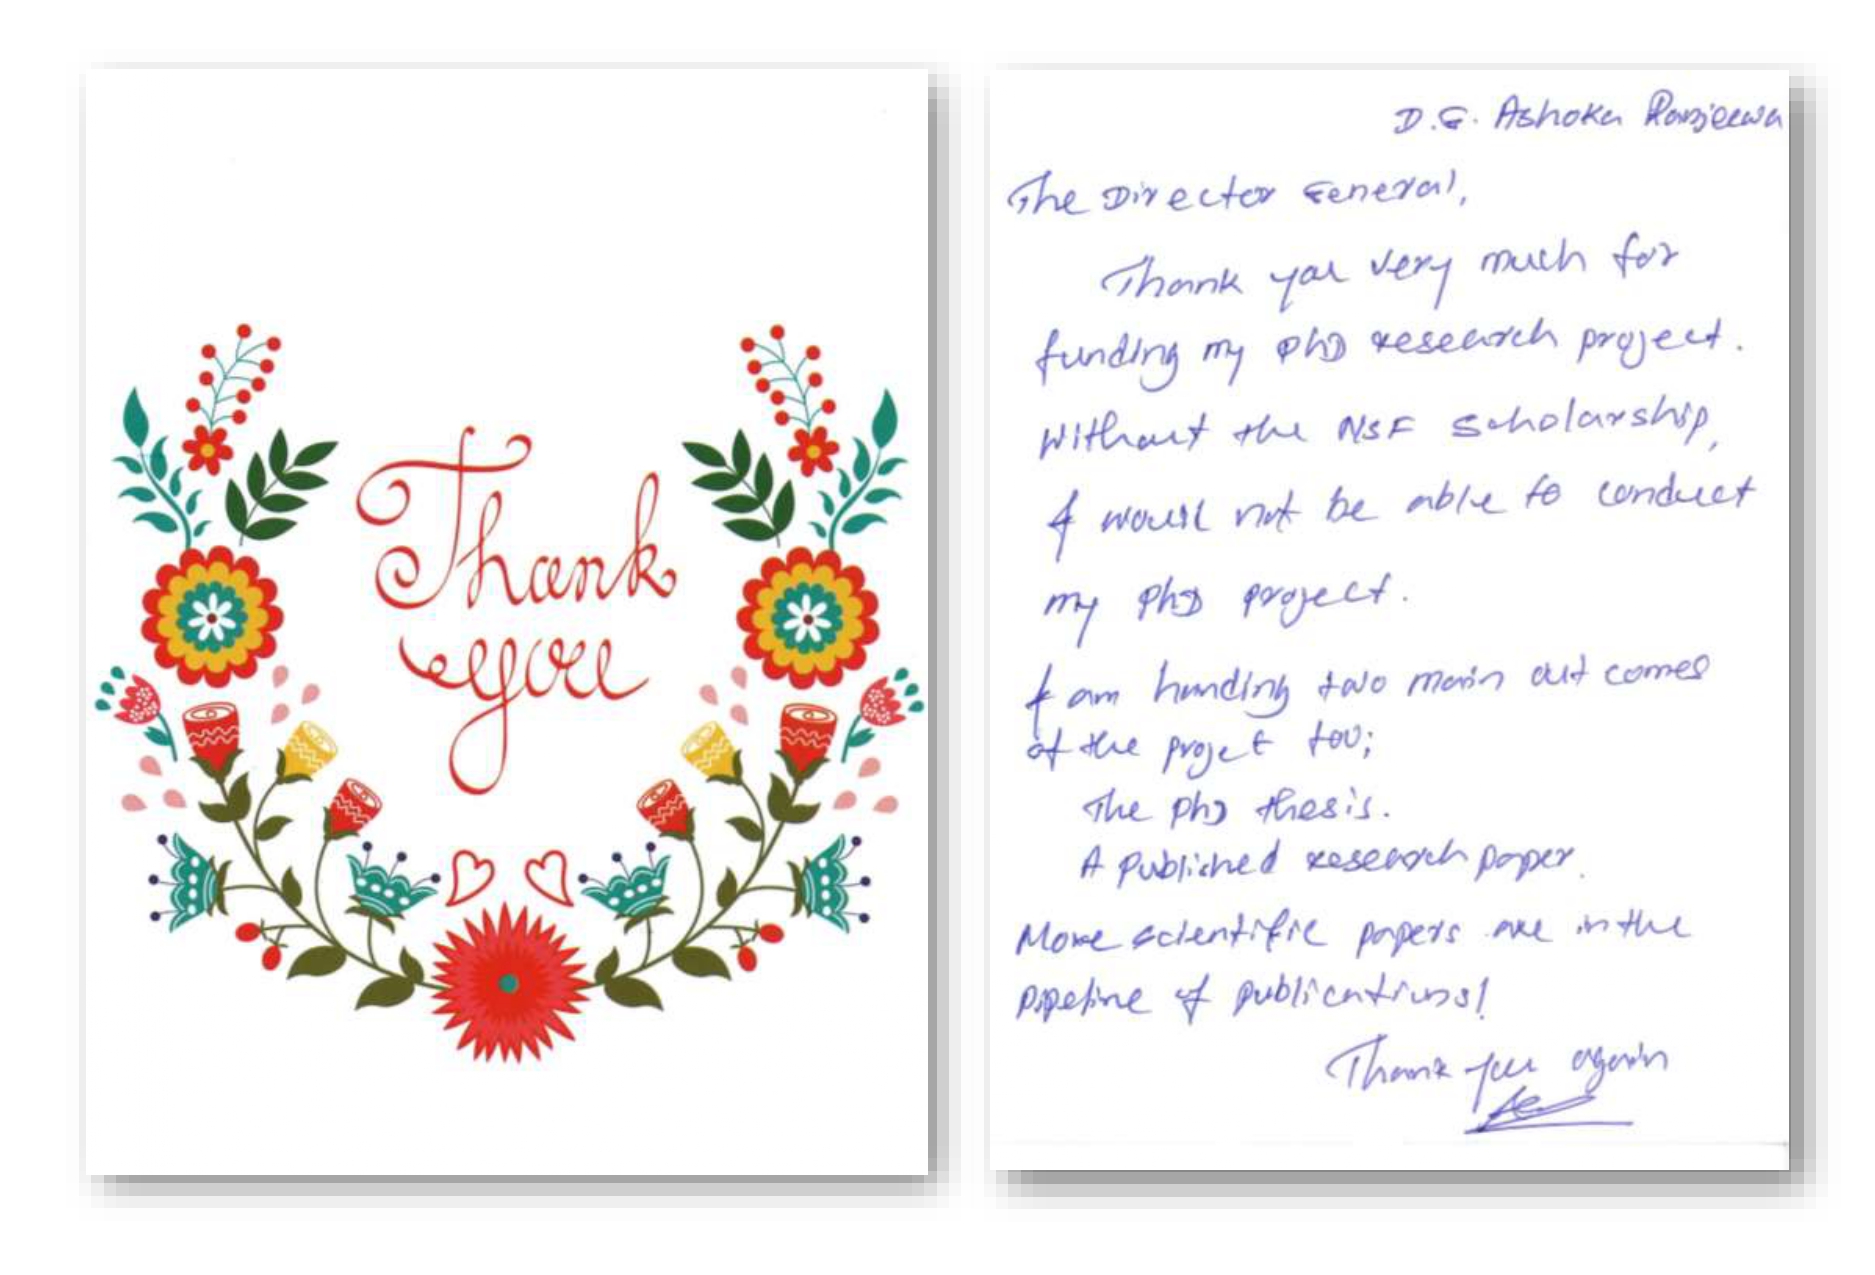 Thank
you
D.G. Ashoka Ranjeewa
The Director General,
Thank you very much for
funding my PhD research project.
Without the NSF Scholarship,
I would not be able to conduct
my PhD project.
I am handing two main out comes
of the project too;
The PhD thesis.
A Published research paper.
More scientific papers are in the
pipeline of publications!
Thank you again